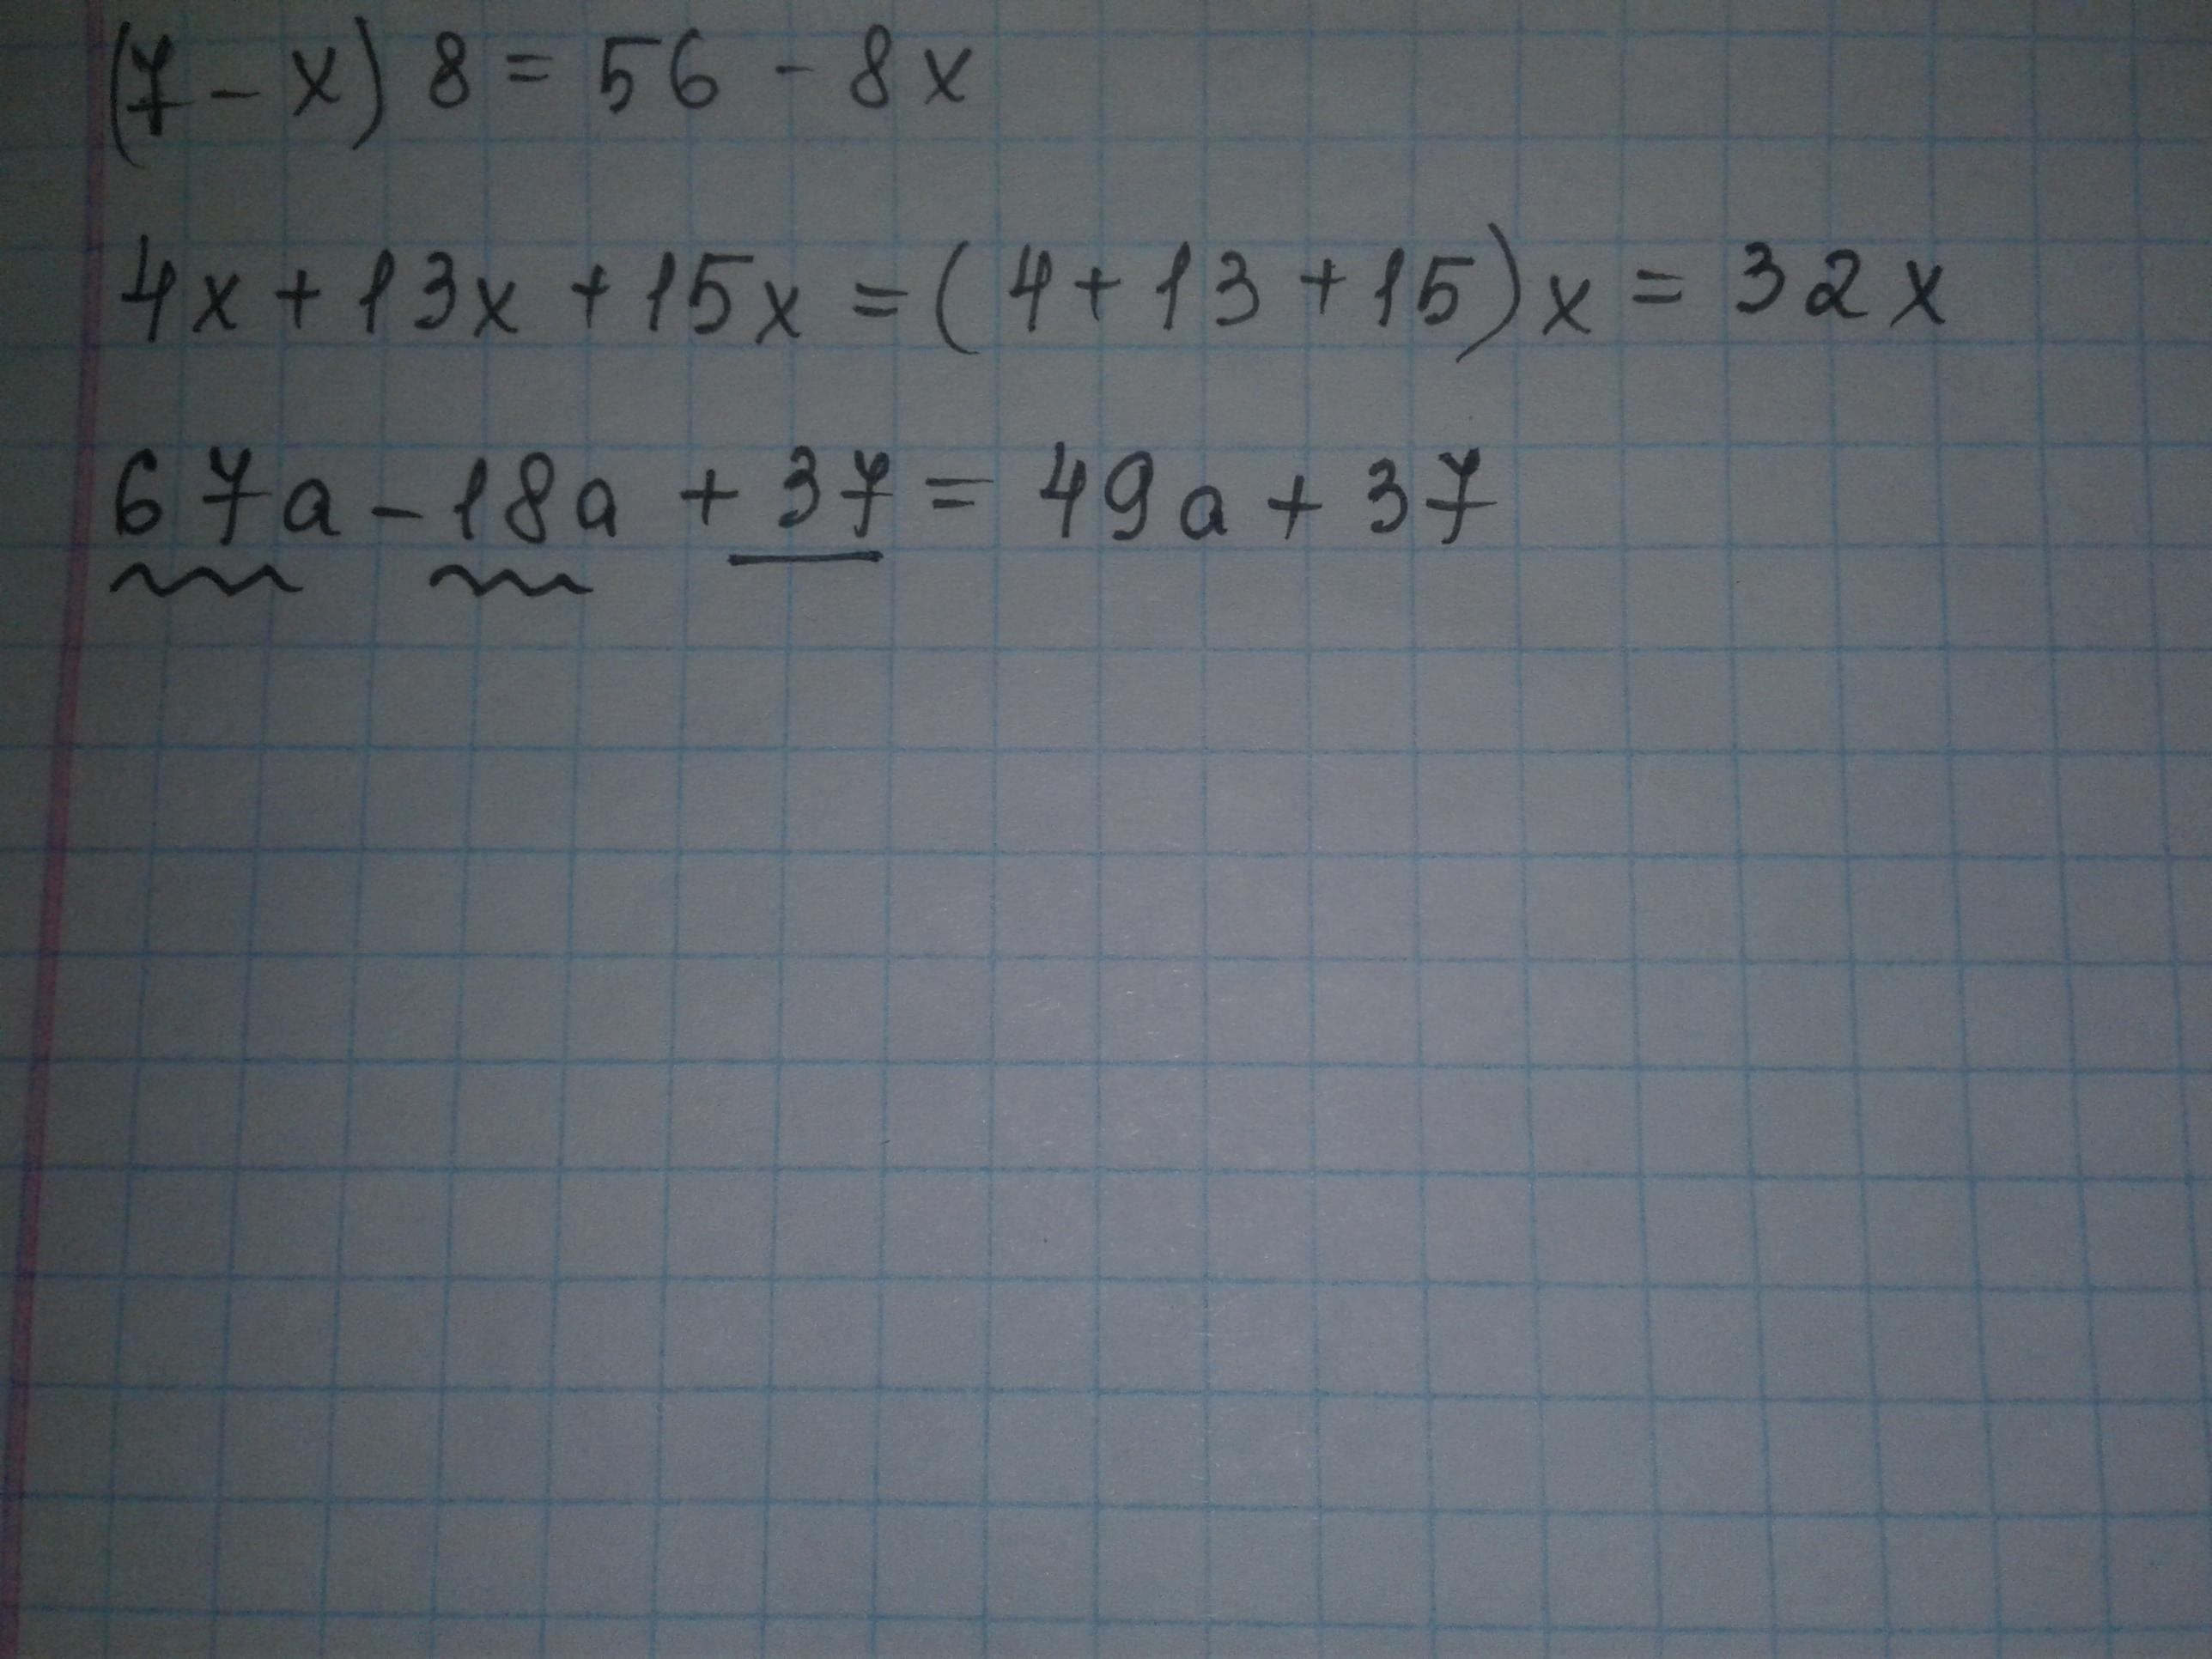 (7 - x) 8 = 56 - 8x
4x + 13x + 15x = (4 + 13 + 15)x = 32x
67a - 18a + 37 = 49a + 37